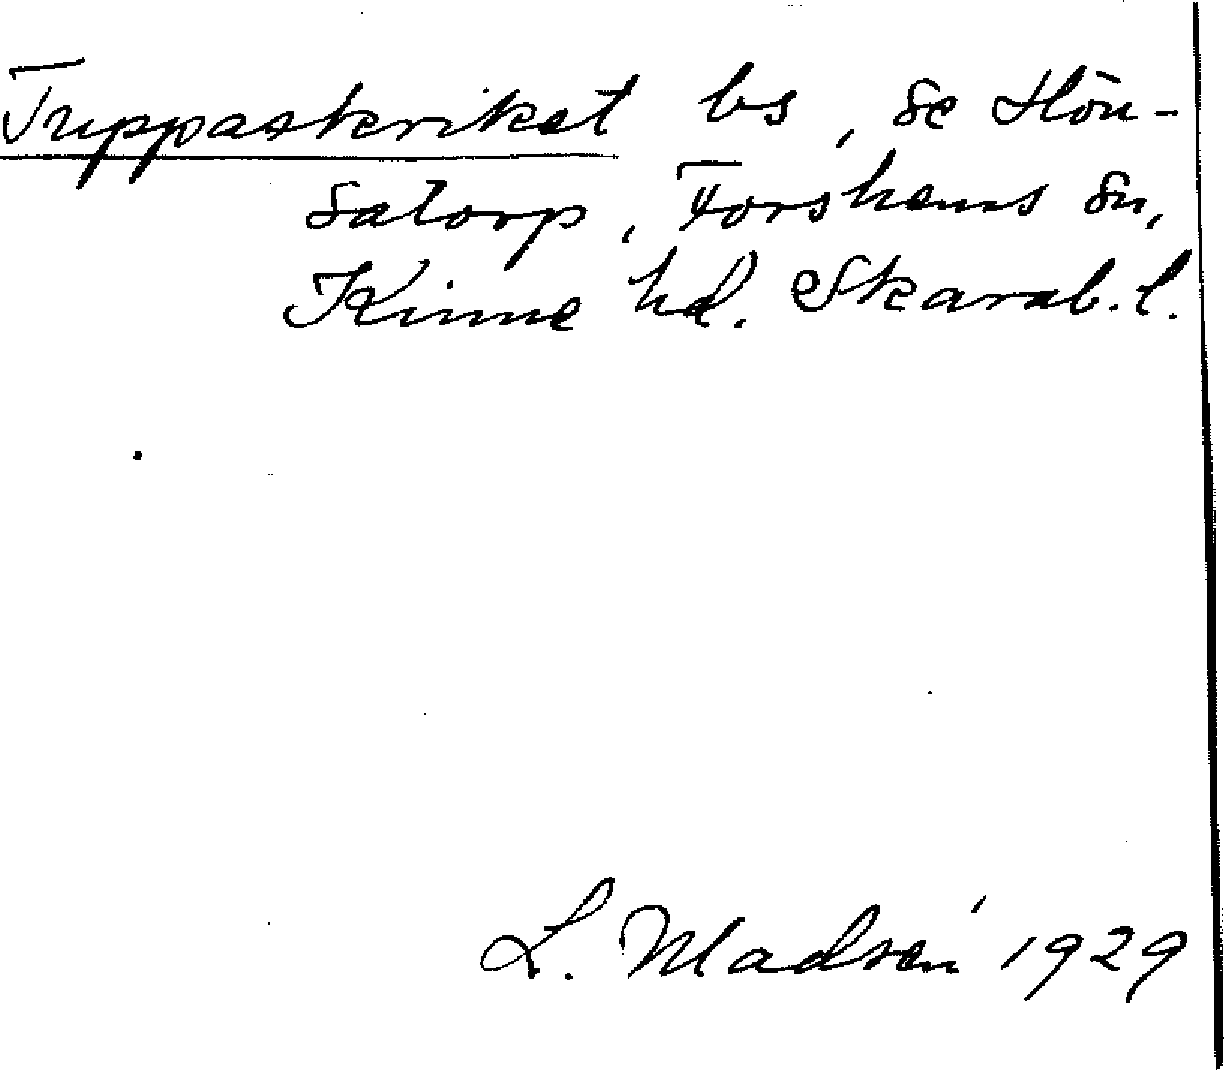 Tuppaskriket bs, se Hön-
satorp, Forshems sn,
Kinne hd. Skarab. l.
L. Madsén 1929